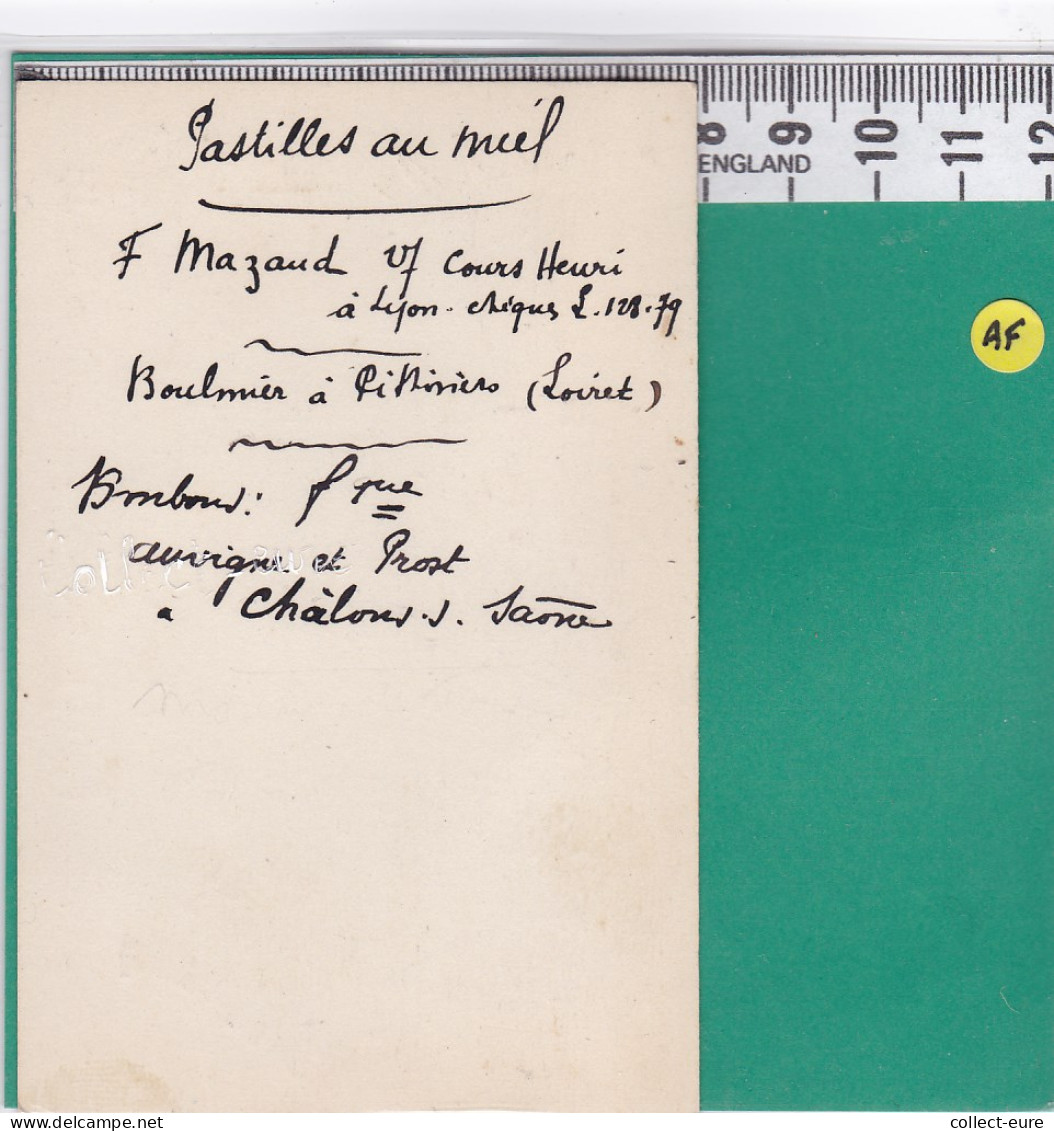 8 9 10 11 12
ENGLAND
AF
Pastilles au miel
F Mazaud 17 Cours Henri
à Lyon. chèques L. 128.79
Boulmier à Pithiviers (Loiret)
Bonbons: fque
auvigne et Prost
a Châlons.s. Saône
delcampe.net
collect-eure